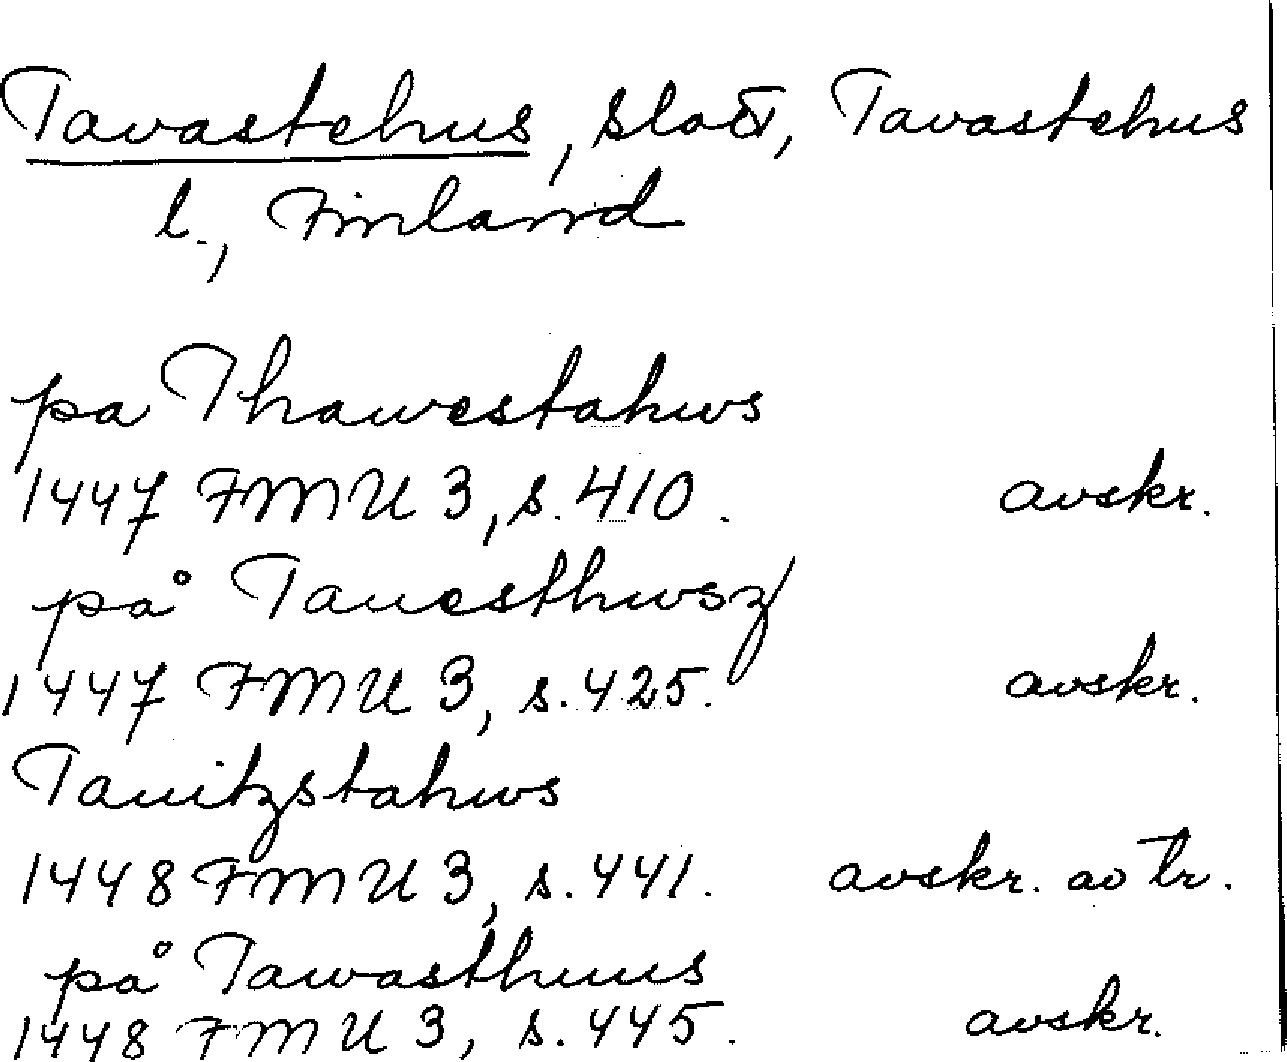 Tavastehus, slott, Tavastehus
l., Finland
pa Thawestahws
1447 FMU 3, s. 410. avskr.
på Tauesthwsz
1447 FMU 3, s. 425. avskr.
Tauitzstahws
1448 FMU 3, s. 441. avskr. av tr.
på Tawasthuus
1448 FMU 3, s. 445. avskr.